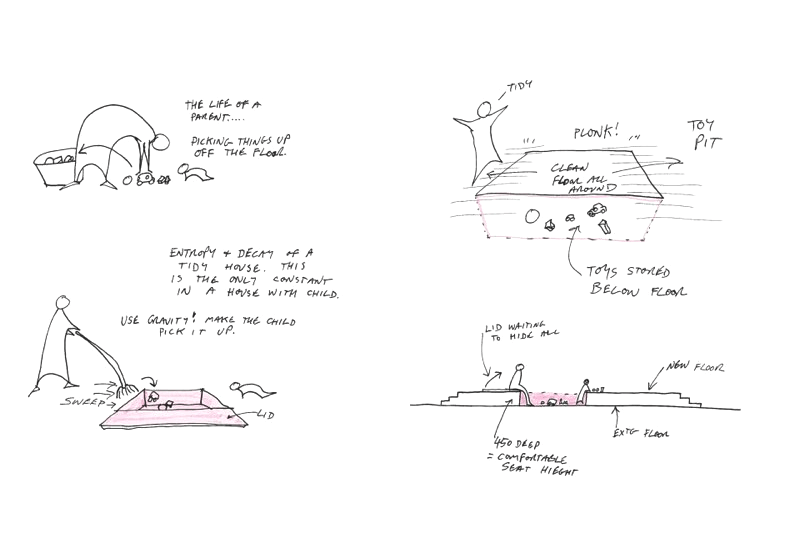 THE LIFE OF A
PARENT.....
PICKING THINGS UP
OFF THE FLOOR.
ENTROPY + DECAY OF A
TIDY HOUSE. THIS
IS THE ONLY CONSTANT
IN A HOUSE WITH CHILD.
USE GRAVITY! MAKE THE CHILD
PICK IT UP.
SWEEP
LID
TIDY
PLONK!
TOY
PIT
CLEAN
FLOOR ALL
AROUND
TOYS STORED
BELOW FLOOR
LID WAITING
TO HIDE ALL
NEW FLOOR
EXTG FLOOR
450 DEEP
= COMFORTABLE
SEAT HIEGHT